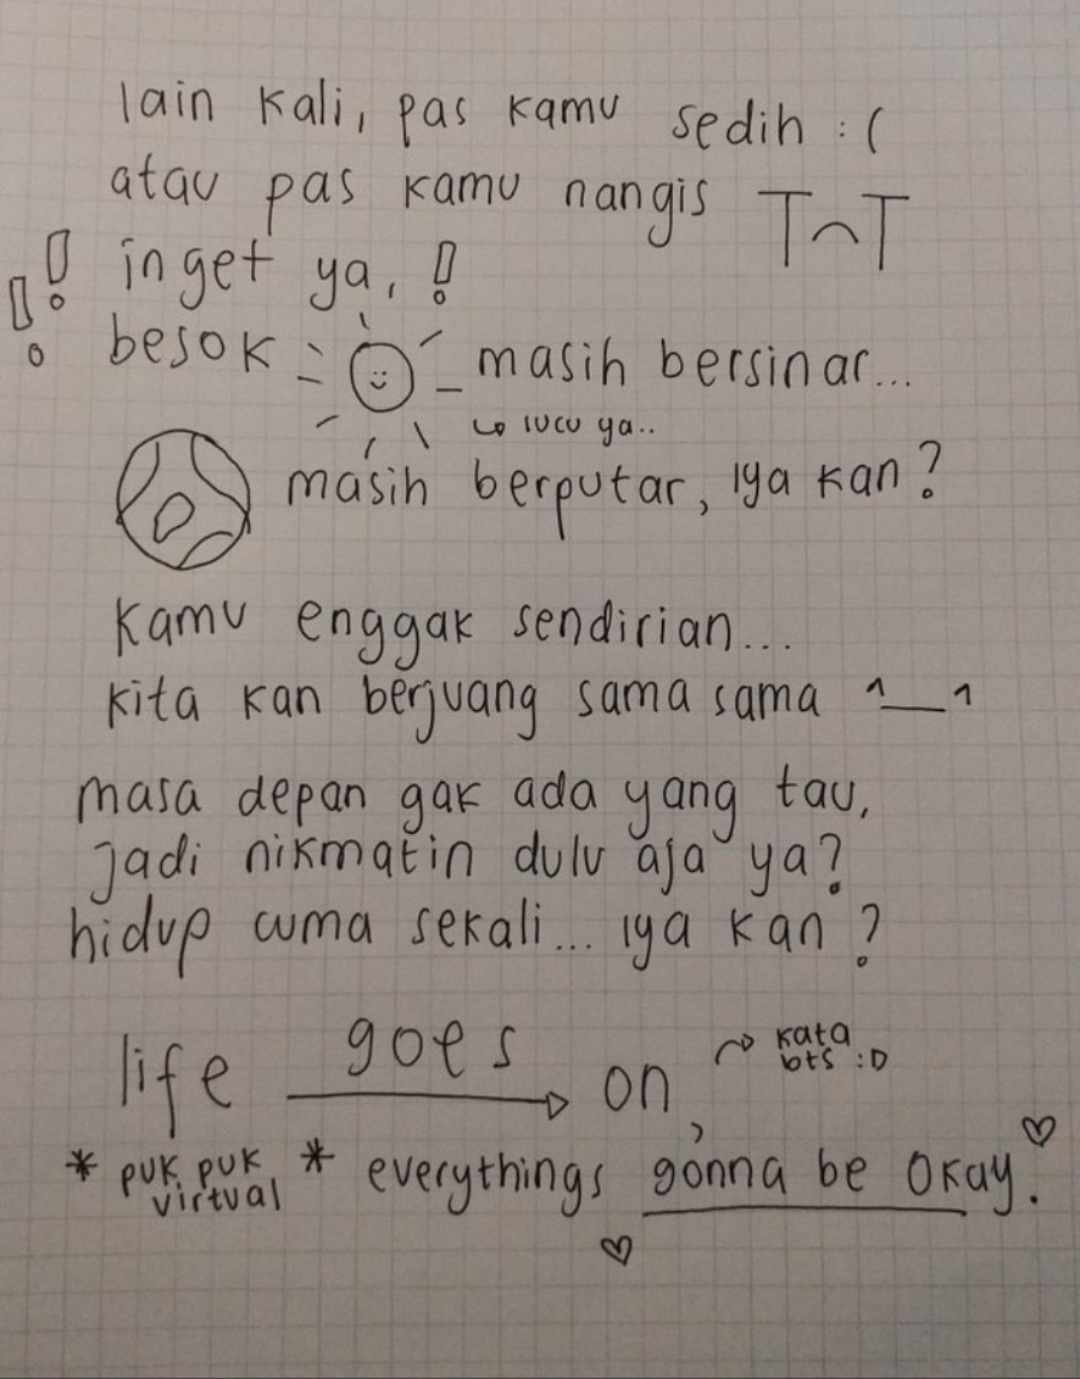 lain kali, pas kamu sedih :(
atau pas kamu nangis T⌢T
!! inget ya, !
besok masih bersinar...
↪ lucu ya..
masih berputar, iya kan?
kamu enggak sendirian...
kita kan berjuang sama sama ^__^
masa depan gak ada yang tau,
jadi nikmatin dulu aja ya?
hidup cuma sekali... iya kan?
life goes on,
→ kata
bts :D
* puk puk virtual * everythings gonna be okay.